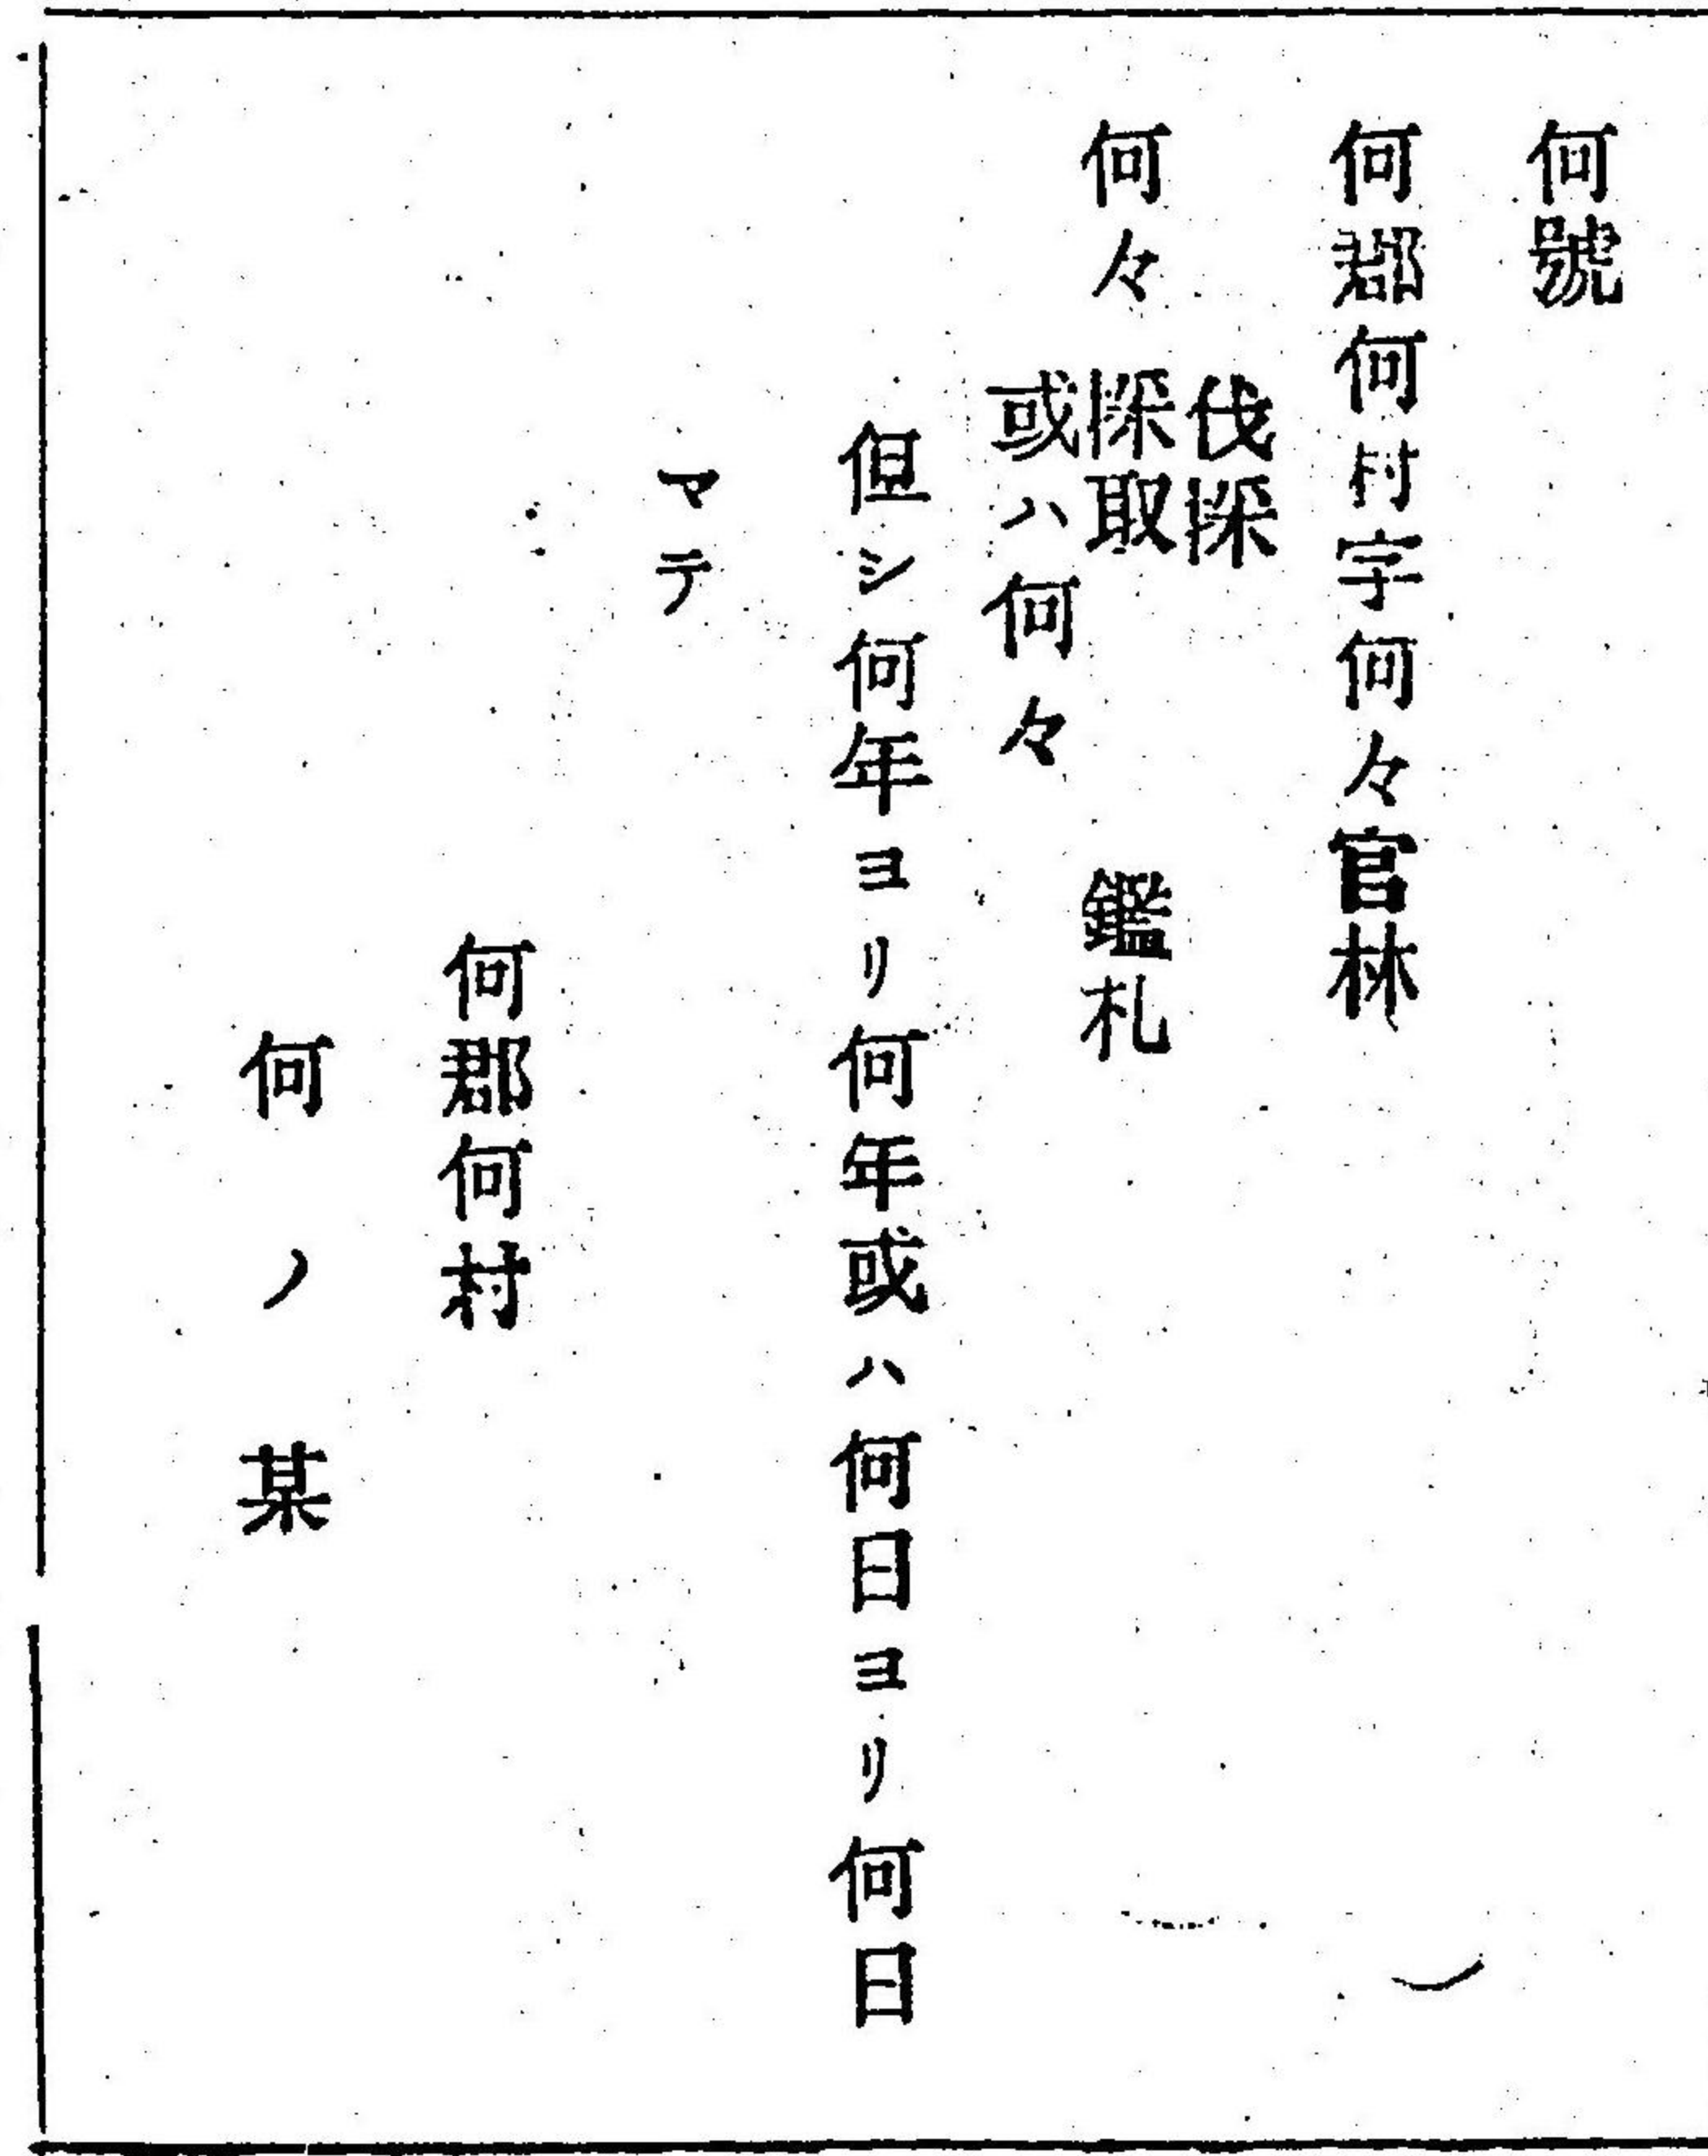 何號
何郡何村字何々官林
伐採
何々採取鑑札
或ハ何々
但シ何年ヨリ何年或ハ何日ヨリ何日
マテ
何郡何村
何ノ某